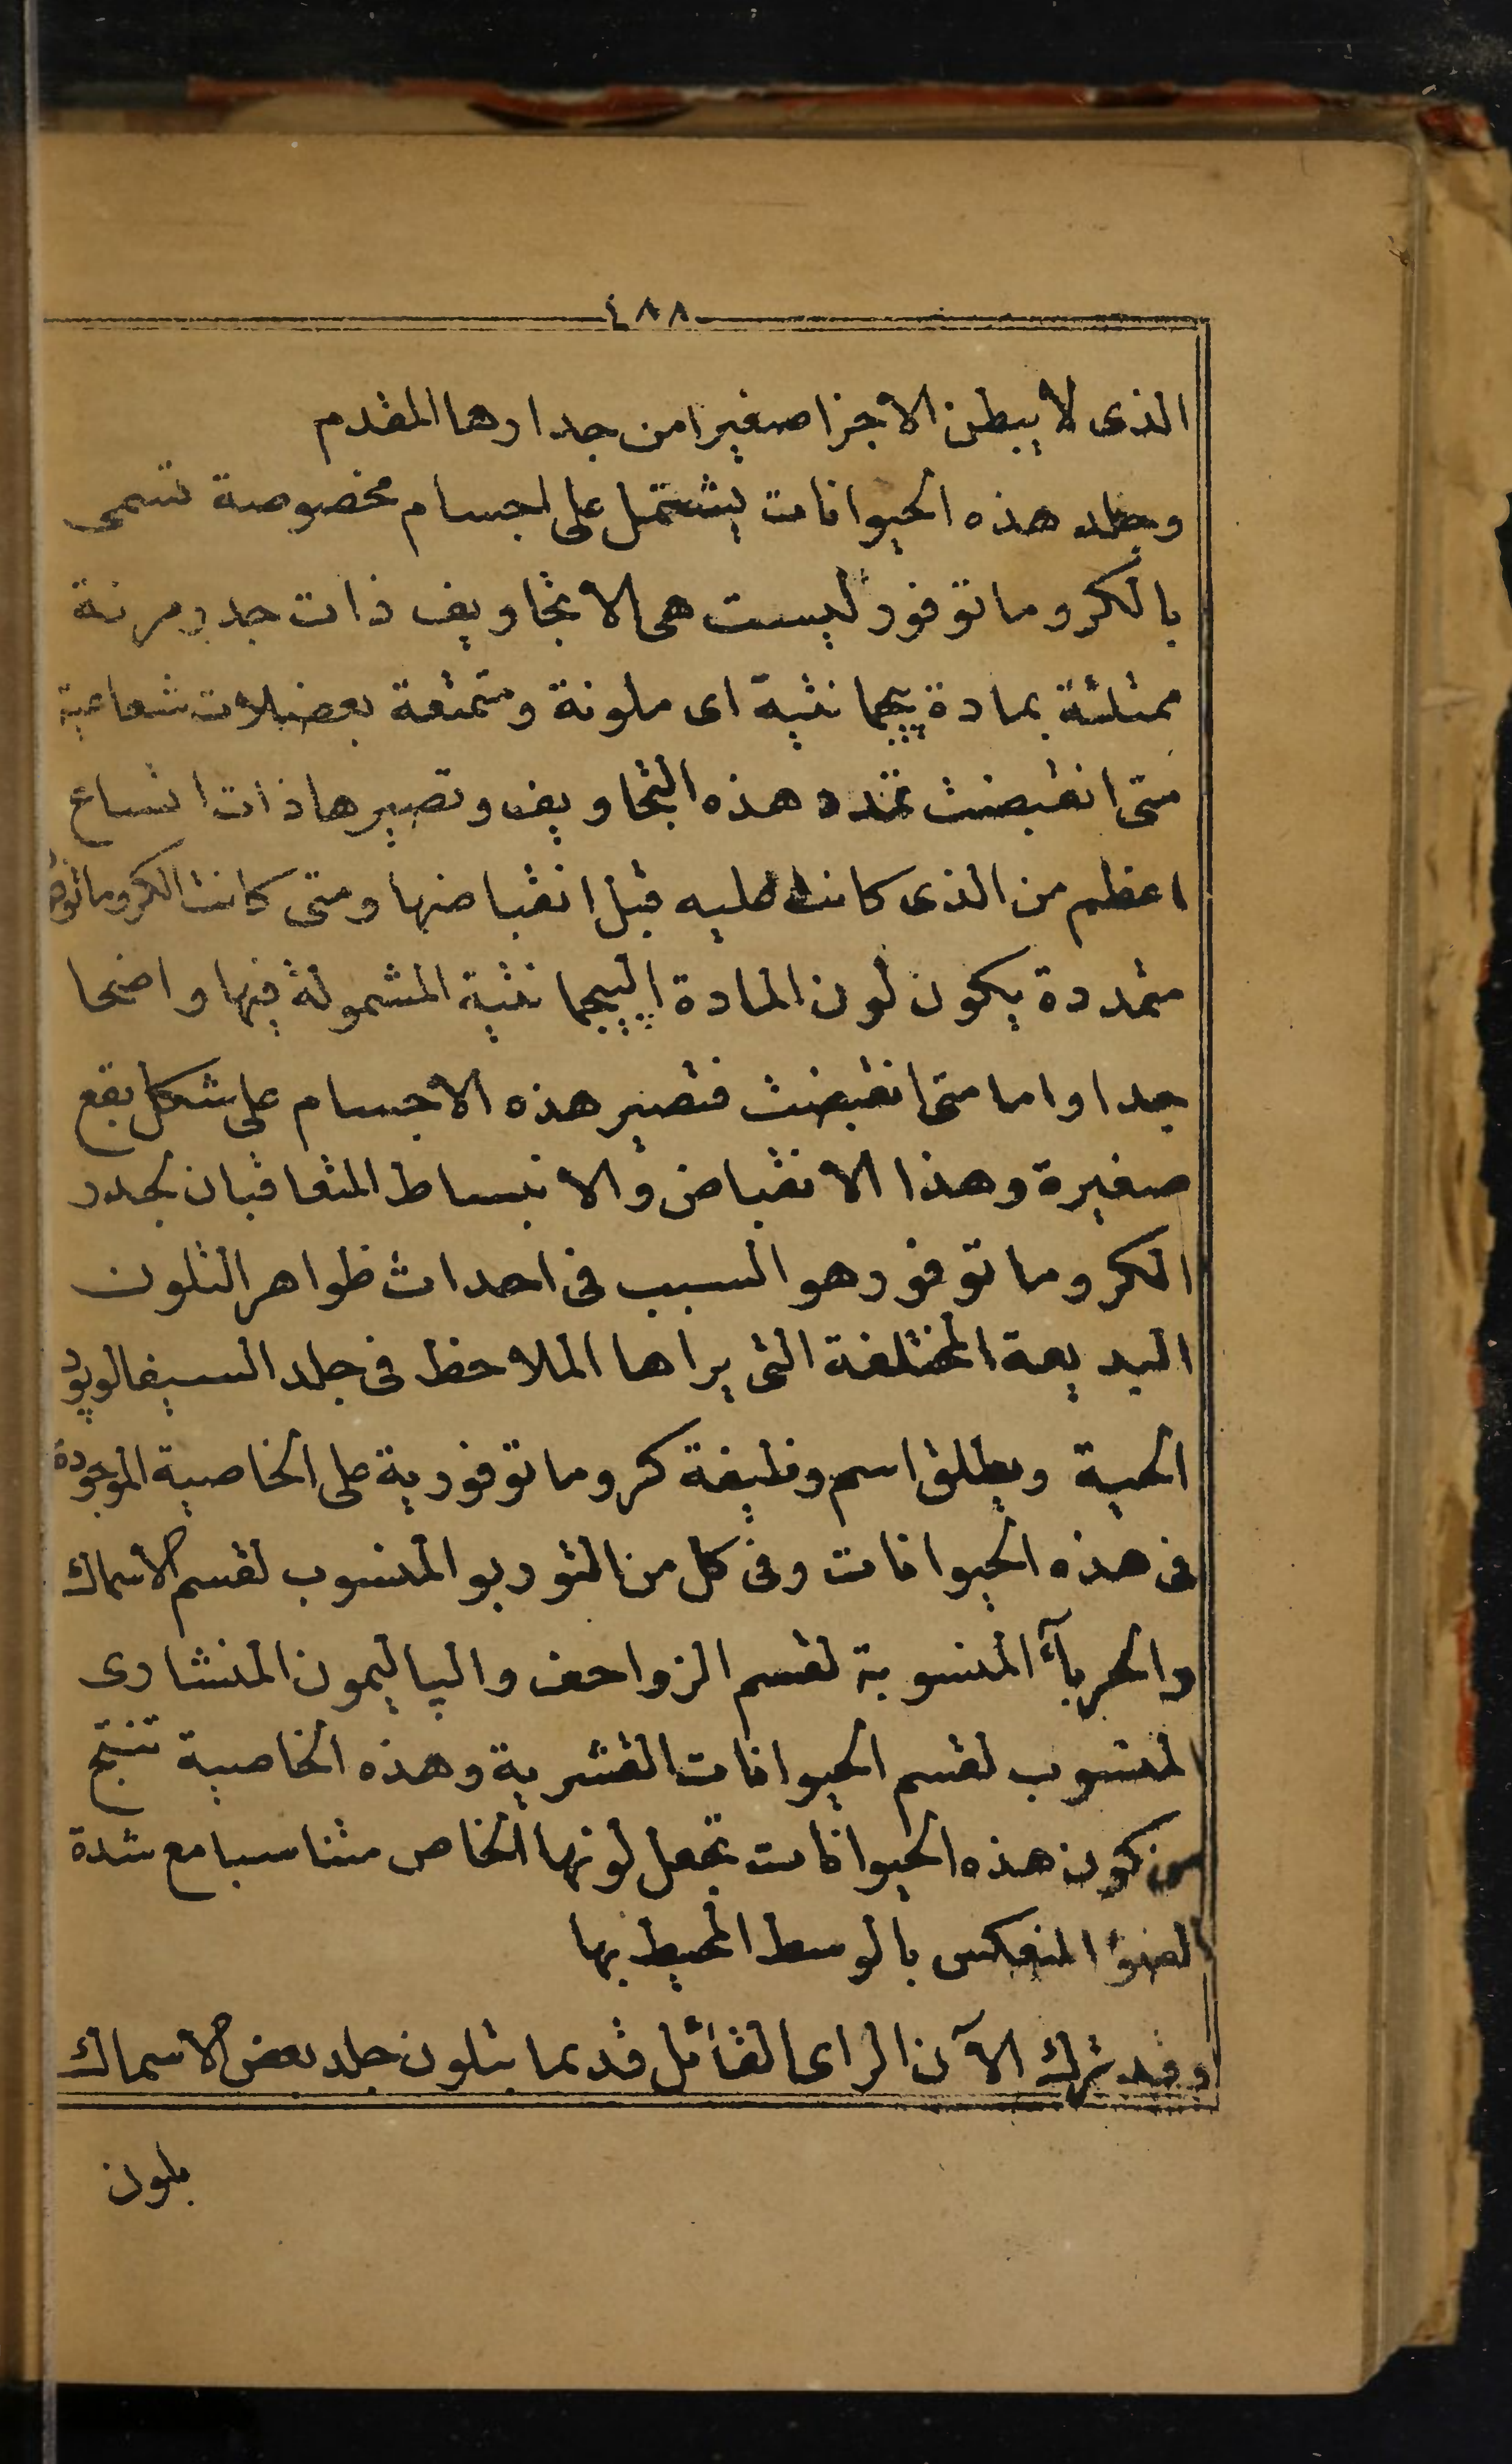 ٤٨٨
الذى لا يبطن الا جزا صغيرا من جدارها المقدم
وجلد هذه الحيوانات يشتمل على اجسام مخصوصة تسمى
بالكروماتوفور ليست هى الا تجاويف ذات جدر مرنة
ممتلئة بمادة پيجمانتية اى ملونة ومتمتعة بعضلات شعاعية
متى انقبضت تمدد هذه التجاويف وتصيرها ذات اتساع
اعظم من الذى كانت عليه قبل انقباضها ومتى كانت الكروماتوفور
متمددة يكون لون المادة الپيجمانتية المشمولة فيها واضحا
جدا واما متى انقبضت فتصير هذه الاجسام على شكل بقع
صغيرة وهذا الانقباض والانبساط المتعاقبان لجدر
الكروماتوفور هو السبب فى احداث ظواهر التلون
البديعة المختلفة التى يراها الملاحظ فى جلد السيفالوپود
الحية ويطلق اسم وظيفة كروماتوفورية على الخاصية الموجودة
فى هذه الحيوانات وفى كل من التوربو المنسوب لقسم الاسماك
والحرباء المنسوبة لقسم الزواحف والپاليمون المنشارى
المنسوب لقسم الحيوانات القشرية وهذه الخاصية تنتج
من كون هذه الحيوانات تجعل لونها الخاص متناسبا مع شدة
الضوء المنعكس بالوسط المحيط بها
وقد ترك الآن الراى القائل قديما بتلون جلد بعض الاسماك
بلون